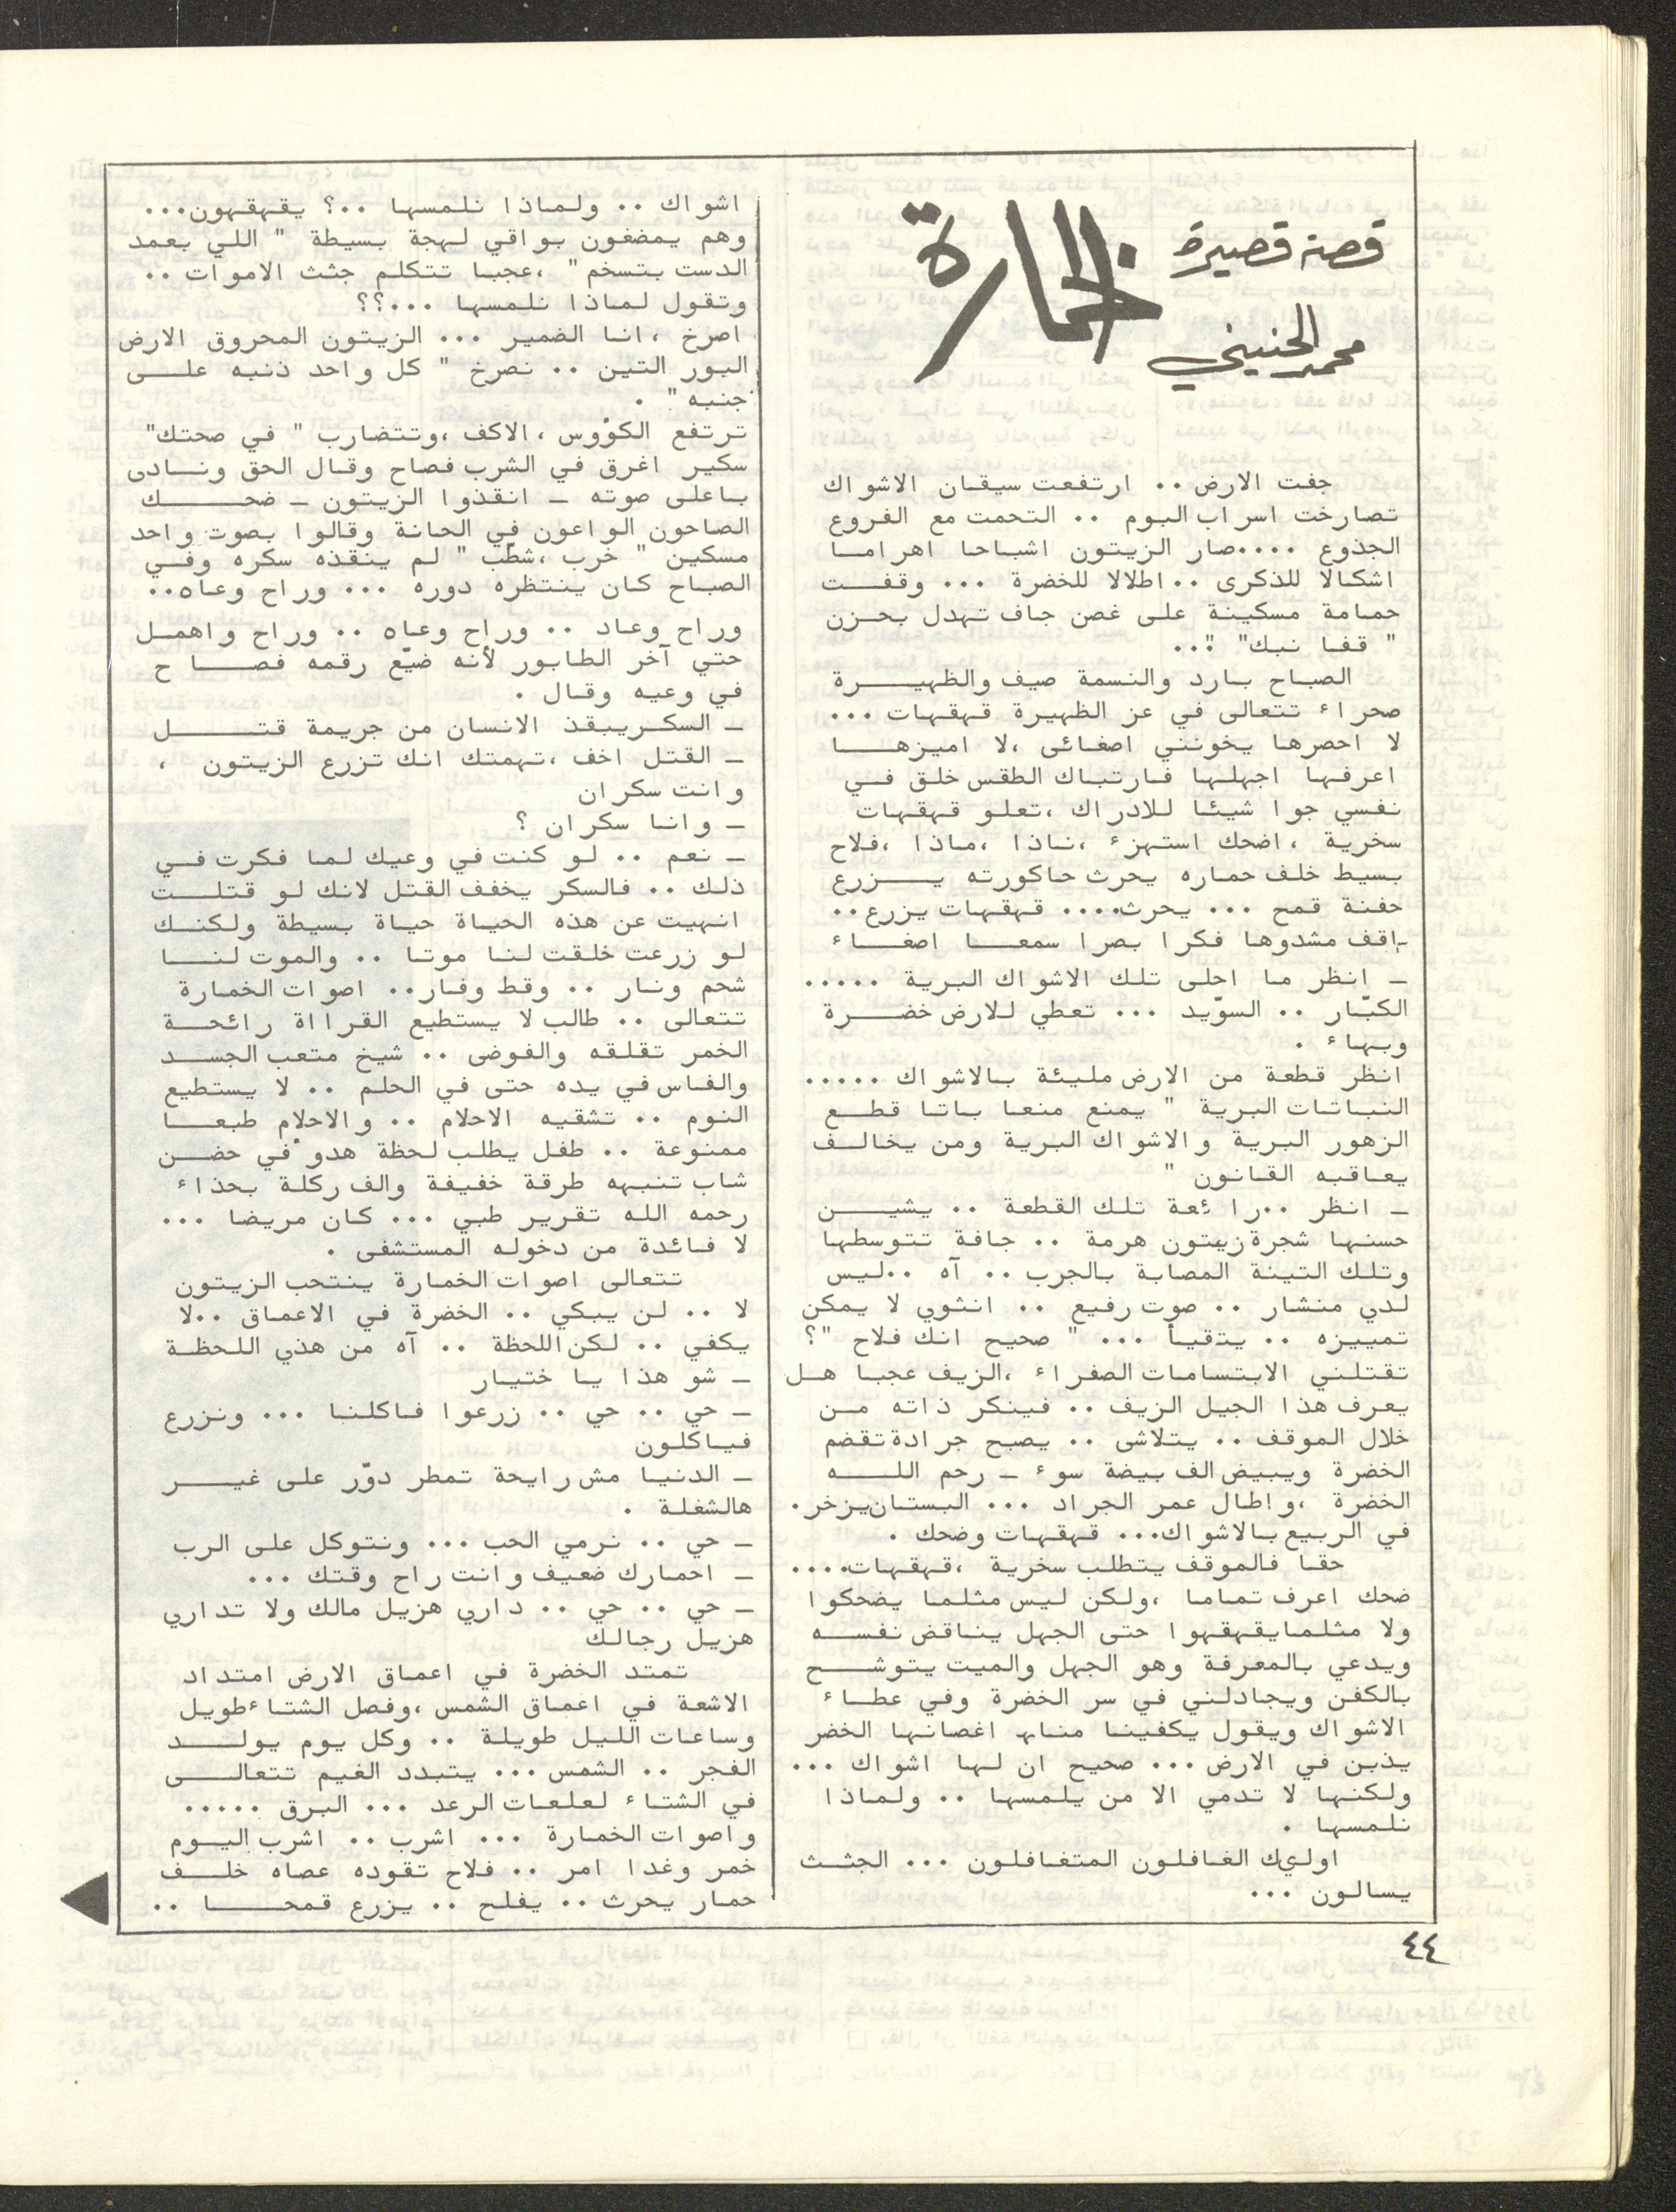 قصة قصيرة
الخمارة
محمد الحنيني
جفت الارض .. ارتفعت سيقان الاشواك
تصارخت اسراب البوم .. التحمت مع الفروع
الجذوع ....صار الزيتون اشباحا اهراما
اشكالا للذكرى ..اطلالا للخضرة ... وقفت
حمامة مسكينة على غصن جاف تهدل بحزن
" قفا نبك" ...
الصباح بارد والنسمة صيف والظهيرة
صحراء تتعالى في عز الظهيرة قهقهات ...
لا احصرها يخونني اصغائى ،لا اميزها
اعرفها اجهلها فارتباك الطقس خلق في
نفسي جوا شيئا للادراك ،تعلو قهقهات
سخرية ، اضحك استهزء ،ناذا ،ماذا ،فلاح
بسيط خلف حماره يحرث حاكورته يزرع
حفنة قمح ... يحرث.... قهقهات يزرع..
اقف مشدوها فكرا بصرا سمعا اصغاء
ـ انظر ما احلى تلك الاشواك البرية .....
الكبّار .. السوّيد ... تعطي لارض خضرة
وبهاء .
انظر قطعة من الارض مليئة بالاشواك .....
النباتات البرية " يمنع منعا باتا قطع
الزهور البرية والاشواك البرية ومن يخالف
يعاقبه القانون "
ـ انظر ..رائعة تلك القطعة .. يشين
حسنها شجرة زيتون هرمة .. جافة تتوسطها
وتلك التينة المصابة بالجرب .. آه ..ليس
لدي منشار .. صوت رفيع .. انثوي لا يمكن
تمييزه .. يتقيأ ... " صحيح انك فلاح "؟
تقتلني الابتسامات الصفراء ،الزيف عجبا هل
يعرف هذا الجيل الزيف .. فينكر ذاته من
خلال الموقف .. يتلاشى .. يصبح جرادة تقضم
الخضرة ويبيض الف بيضة سوء ـ رحم اللـه
الخضرة ،واطال عمر الجراد ... البستان يزخر.
في الربيع بالاشواك... قهقهات وضحك .
حقا فالموقف يتطلب سخرية ،قهقهات....
ضحك اعرف تماما ،ولكن ليس مثلما يضحكوا
ولا مثلما يقهقهوا حتى الجهل يناقض نفسه
ويدعي بالمعرفة وهو الجهل والميت يتوشح
بالكفن ويجادلني في سر الخضرة وفي عطاء
الاشواك ويقول يكفينا اغصانها الخضر
يذبن في الارض ... صحيح ان لها اشواك ...
ولكنها لا تدمي الا من يلمسها .. ولماذا
نلمسها .
اوليك الغافلون المتغافلون ... الجثث
يسالون ...
اشواك .. ولماذا نلمسها ..؟ يقهقهون...
وهم يمضغون بواقي لهجة بسيطة " اللي بعمد
الدست بتسخم " ،عجبا تتكلم جثث الاموات ..
وتقول لماذا نلمسها ...؟؟
اصرخ ، انا الضمير ... الزيتون المحروق الارض
البور التين .. نصرخ " كل واحد ذنبه علـى
جنبه " .
ترتفع الكؤوس ، الاكف ،وتتضارب " في صحتك"
سكير اغرق في الشرب فصاح وقال الحق ونادى
باعلى صوته ـ انقذوا الزيتون ـ ضحك
الصاحون الواعون في الحانة وقالوا بصوت واحد
مسكين " خرب ،شطّب " لم ينقذه سكره وفي
الصباح كان ينتظره دوره ... وراح وعاه..
وراح وعاد .. وراح وعاه .. وراح واهمل
حتي آخر الطابور لأنه ضيّع رقمه فصاح
في وعيه وقال .
ـ السكر يبقذ الانسان من جريمة قتل
ـ القتل اخف ،تهمتك انك تزرع الزيتون ،
وانت سكران
ـ وانا سكران ؟
ـ نعم .. لو كنت في وعيك لما فكرت في
ذلك .. فالسكر يخفف القتل لانك لو قتلت
انهيت عن هذه الحياة حياة بسيطة ولكنك
لو زرعت خلقت لنا موتا .. والموت لنا
شحم ونار .. وقط وفار.. اصوات الخمارة
تتعالى .. طالب لا يستطيع القرااة رائحة
الخمر تقلقه والفوضى .. شيخ متعب الجسد
والفاس في يده حتى في الحلم .. لا يستطيع
النوم .. تشقيه الاحلام .. والاحلام طبعا
ممنوعة .. طفل يطلب لحظة هدوء في حضن
شاب تنبهه طرقة خفيفة والف ركلة بحذاء
رحمه الله تقرير طبي ... كان مريضا ...
لا فائدة من دخوله المستشفى .
تتعالى اصوات الخمارة ينتحب الزيتون
لا .. لن يبكي .. الخضرة في الاعماق ..لا
يكفي .. لكن اللحظة .. آه من هذي اللحظة
ـ شو هذا يا ختيار
ـ حي .. حي .. زرعوا فاكلنا ... ونزرع
فياكلون
ـ الدنيا مش رايحة تمطر دوّر على غير
هالشغلة .
ـ حي .. نرمي الحب ... ونتوكل على الرب
ـ احمارك ضعيف وانت راح وقتك ...
ـ حي .. حي .. داري هزيل مالك ولا تداري
هزيل رجالك
تمتد الخضرة في اعماق الارض امتداد
الاشعة في اعماق الشمس ،وفصل الشتاء طويل
وساعات الليل طويلة .. وكل يوم يولد
الفجر .. الشمس ... يتبدد الغيم تتعالى
في الشتاء لعلعات الرعد ... البرق .....
واصوات الخمارة ... اشرب .. اشرب اليوم
خمر وغدا امر .. فلاح تقوده عصاه خلف
حمار يحرث .. يفلح .. يزرع قمحا ..
٤٤